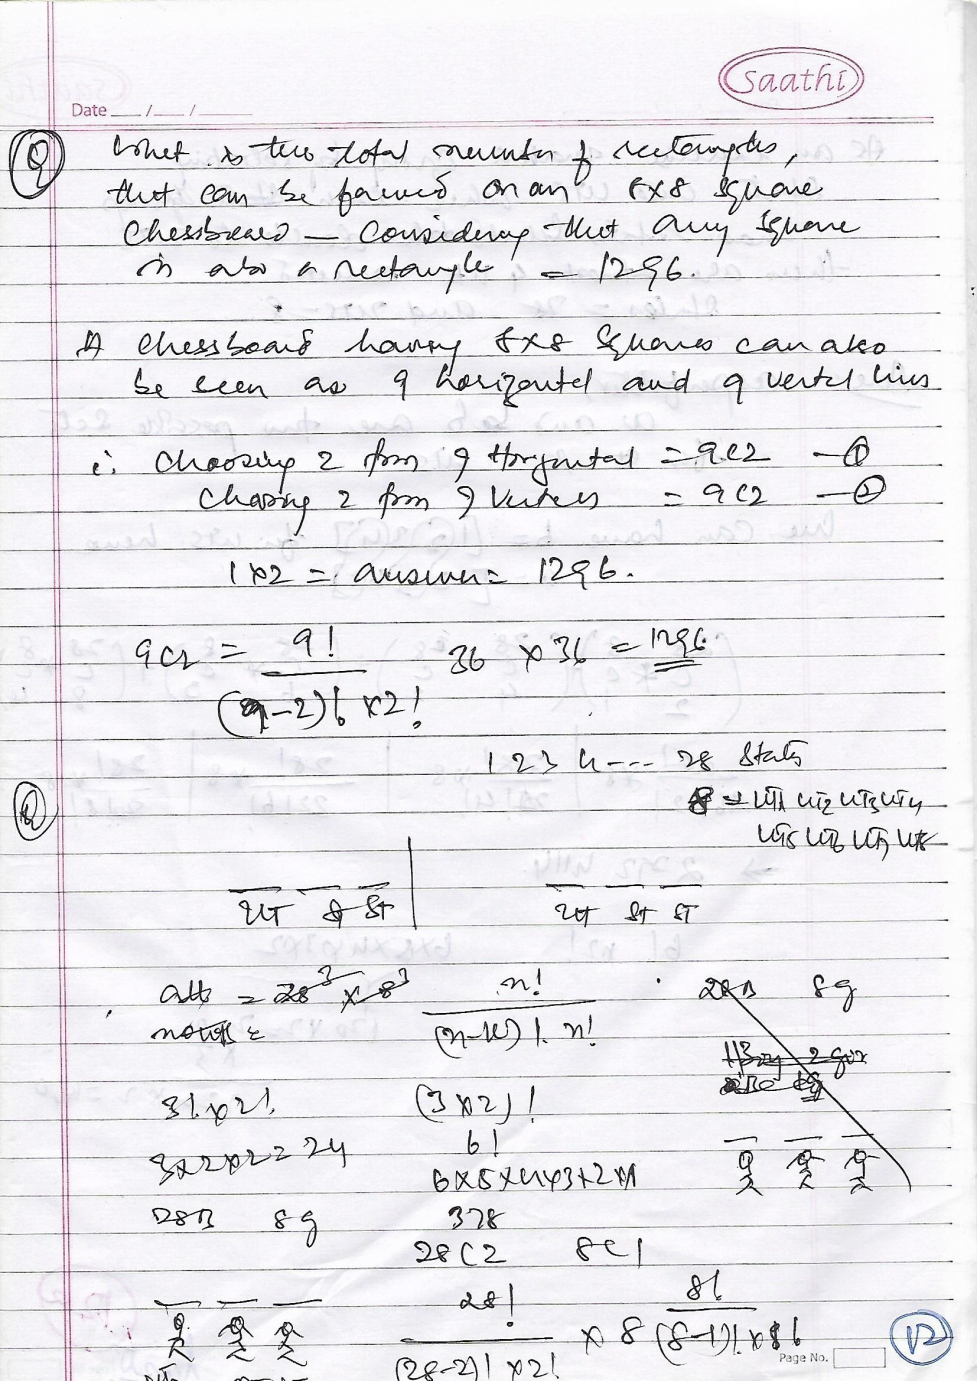 Saathi
Date / /
Q What is the total number of rectangles,
that can be formed on an 8x8 square
chessboard — considering that any square
is also a rectangle = 1296.
A chessboard having 8x8 squares can also
be seen as 9 horizontal and 9 vertcl lines
i. Choosing 2 from 9 Horizontal = 9C2 — ①
Chosing 2 from 9 = 9C2 — ②
1 x 2 = answer = 1296.
9C2 = 9! / (9-2)! x 2! 36 x 36 = 1296
1 2 3 4 --- 28 States
Q 8 = UT1 UT2 UT3 UT4
UT5 UT6 UT7 UT8
UT ST ST UT ST ST
= 28³ x 8³ n! / (n-r)! n! 28B 8g
3! x 2! (3 x 2)!
3x2x2 = 24 6!
6x5x4x3x2x1
28B 8g 378
28C2 8C1
28! / (28-2)! x 2! x 8 8! / (8-1)! x 1!
Page No. 12